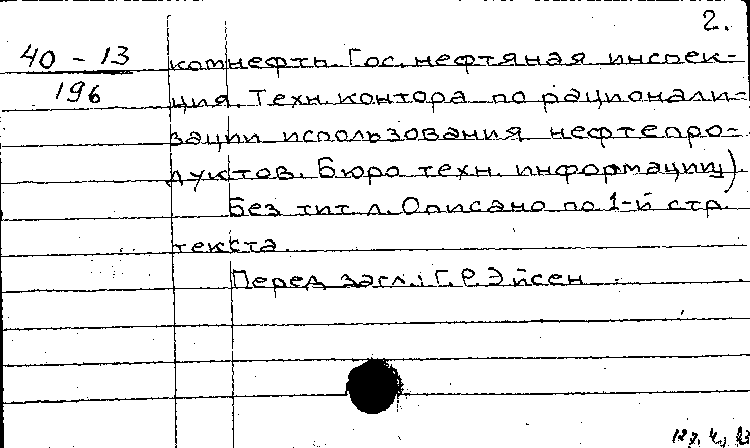 2.
40 – 13
196
комнефть. Гос. нефтяная инспек-
ция. Техн. контора по рационали-
зации использования нефтепро-
дуктов. Бюро техн. информации).
Без тит. л. Описано по 1-й стр.
текста.
Перед загл.: Г. Р. Эйсен